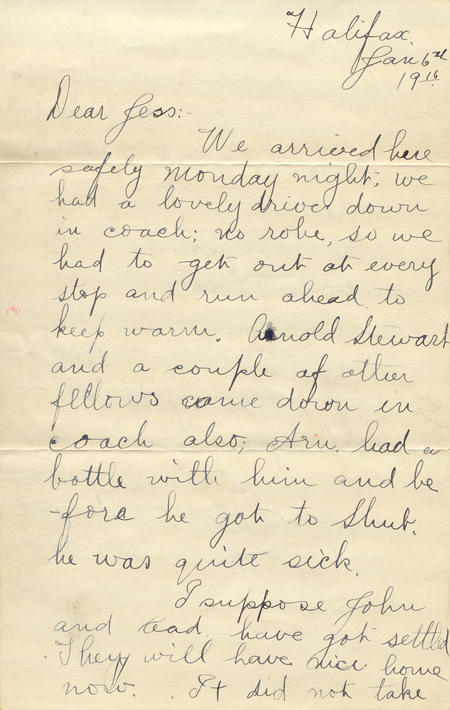 Halifax.
Jan 6th
1916
Dear Jess:-
We arrived here
safely Monday night; we
had a lovely drive down
in coach; no robe, so we
had to get out at every
stop and run ahead to
keep warm. Arnold Stewart
and a couple of other
fellows came down in
coach also; Arn. had a
bottle with him and be
-fore he got to Shub.
he was quite sick.
I suppose John
and have got settled
They will have nice home
now. It did not take